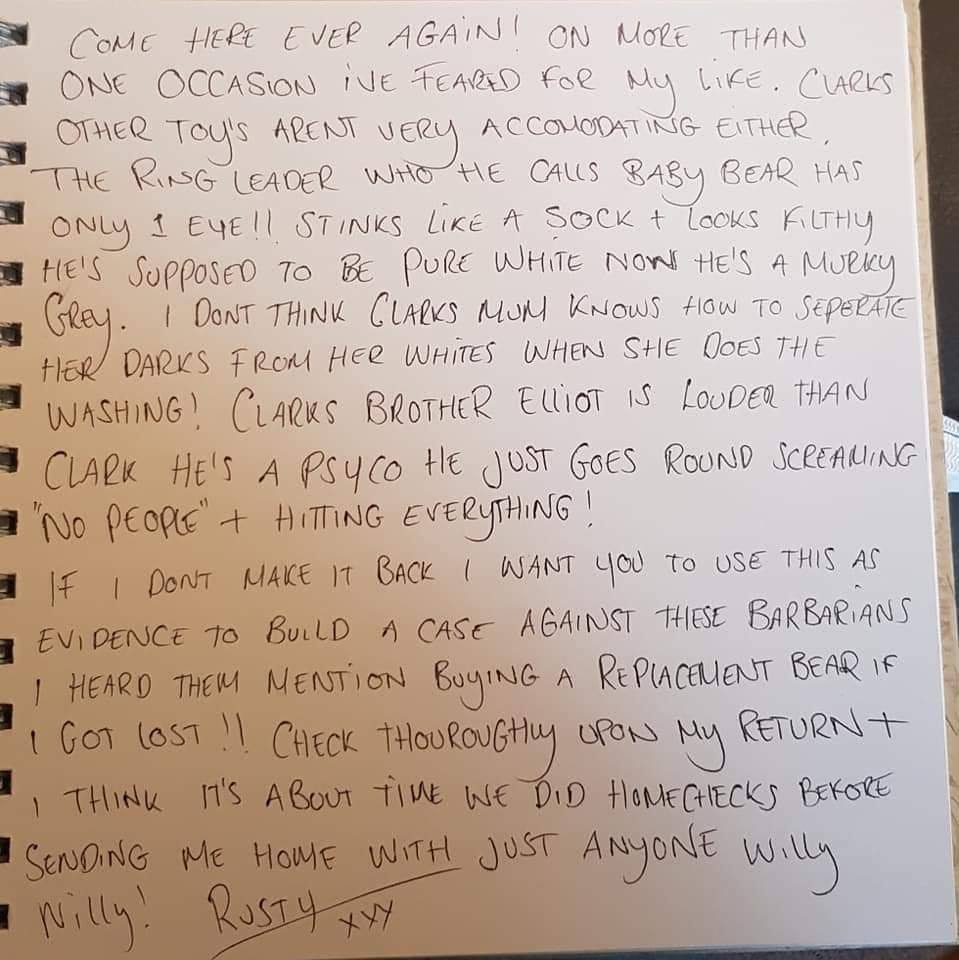 COME HERE EVER AGAIN! ON MORE THAN
ONE OCCASION I'VE FEARED FOR MY LIFE. CLARKS
OTHER TOY'S ARENT VERY ACCOMODATING EITHER.
THE RING LEADER WHO HE CALLS BABY BEAR HAS
ONLY 1 EYE!! STINKS LIKE A SOCK + LOOKS FILTHY
HE'S SUPPOSED TO BE PURE WHITE NOW HE'S A MURKY
GREY. I DONT THINK CLARKS MUM KNOWS HOW TO SEPERATE
HER DARKS FROM HER WHITES WHEN SHE DOES THE
WASHING! CLARKS BROTHER ELLIOT IS LOUDER THAN
CLARK HE'S A PSYCO HE JUST GOES ROUND SCREAMING
"NO PEOPLE" + HITTING EVERYTHING!
IF I DONT MAKE IT BACK I WANT YOU TO USE THIS AS
EVIDENCE TO BUILD A CASE AGAINST THESE BARBARIANS
I HEARD THEM MENTION BUYING A REPLACEMENT BEAR IF
I GOT LOST!! CHECK THOUROUGHLY UPON MY RETURN +
I THINK IT'S ABOUT TIME WE DID HOMECHECKS BEFORE
SENDING ME HOME WITH JUST ANYONE WILLY
NILLY! RUSTY XXX